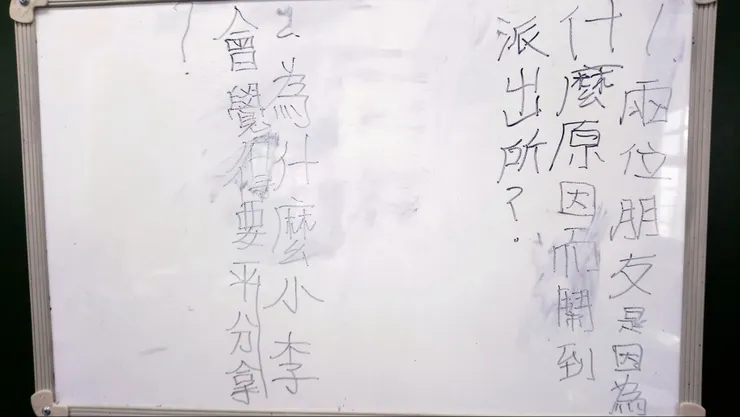 1.兩位朋友是因為
什麼原因而鬧到
派出所?
2.為什麼小李
會覺得要平分拿
?